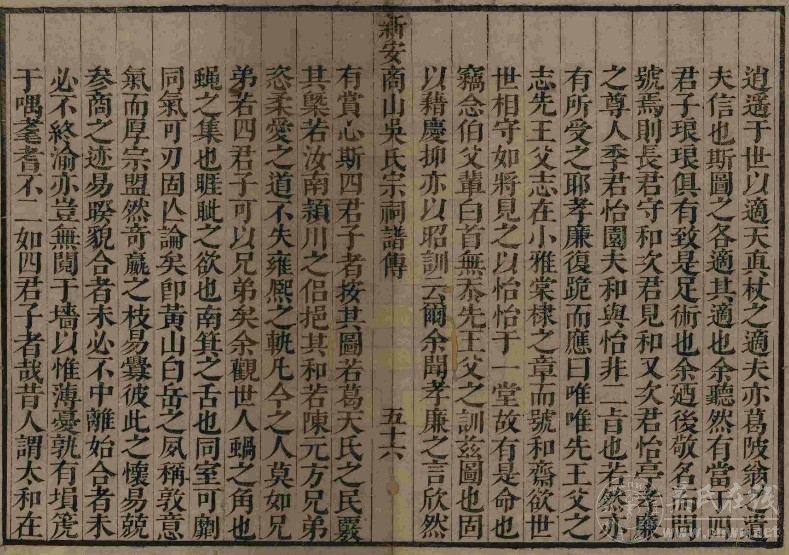 逍遥于世以適天真杖之適夫亦葛陂翁之意
夫信也斯圖之各適其適也余聽然有當于四
君子琅琅俱有致是足術也余廼後敬名而問
號焉則長君守和次君見和又次君怡亭孝廉
之尊人季君怡園夫和與怡非二旨也若然亦
有所受之耶孝廉復跪而應曰唯唯先王父之
志先王父志在小雅棠棣之章而號和齋欲世
世相守如將見之以怡怡于一堂故有是命也
竊念伯父輩白首無忝先王父之訓兹圖也固
以藉慶抑亦以昭訓云爾余聞孝廉之言欣然
新安商山吳氏宗祠譜傳 五十六
有賞心斯四君子者按其圖若葛天氏之民覈
其槩若汝南潁川之侣挹其和若陳元方兄弟
恣柔愛之道不失雍熙之軌凡今之人莫如兄
弟若四君子可以兄弟矣余觀世人蝸之角也
蝇之集也睚眦之欲也南箕之舌也同室可劘
同氣可刃固亾論矣卽黄山白岳之夙稱敦意
氣而厚宗盟然奇贏之枝易釁彼此之懷易兢
参商之迹易暌貌合者未必不中離始合者未
必不終渝亦豈無鬩于墻以惟薄憂孰有塤箎
于喁耄耆不二如四君子者哉昔人謂太和在